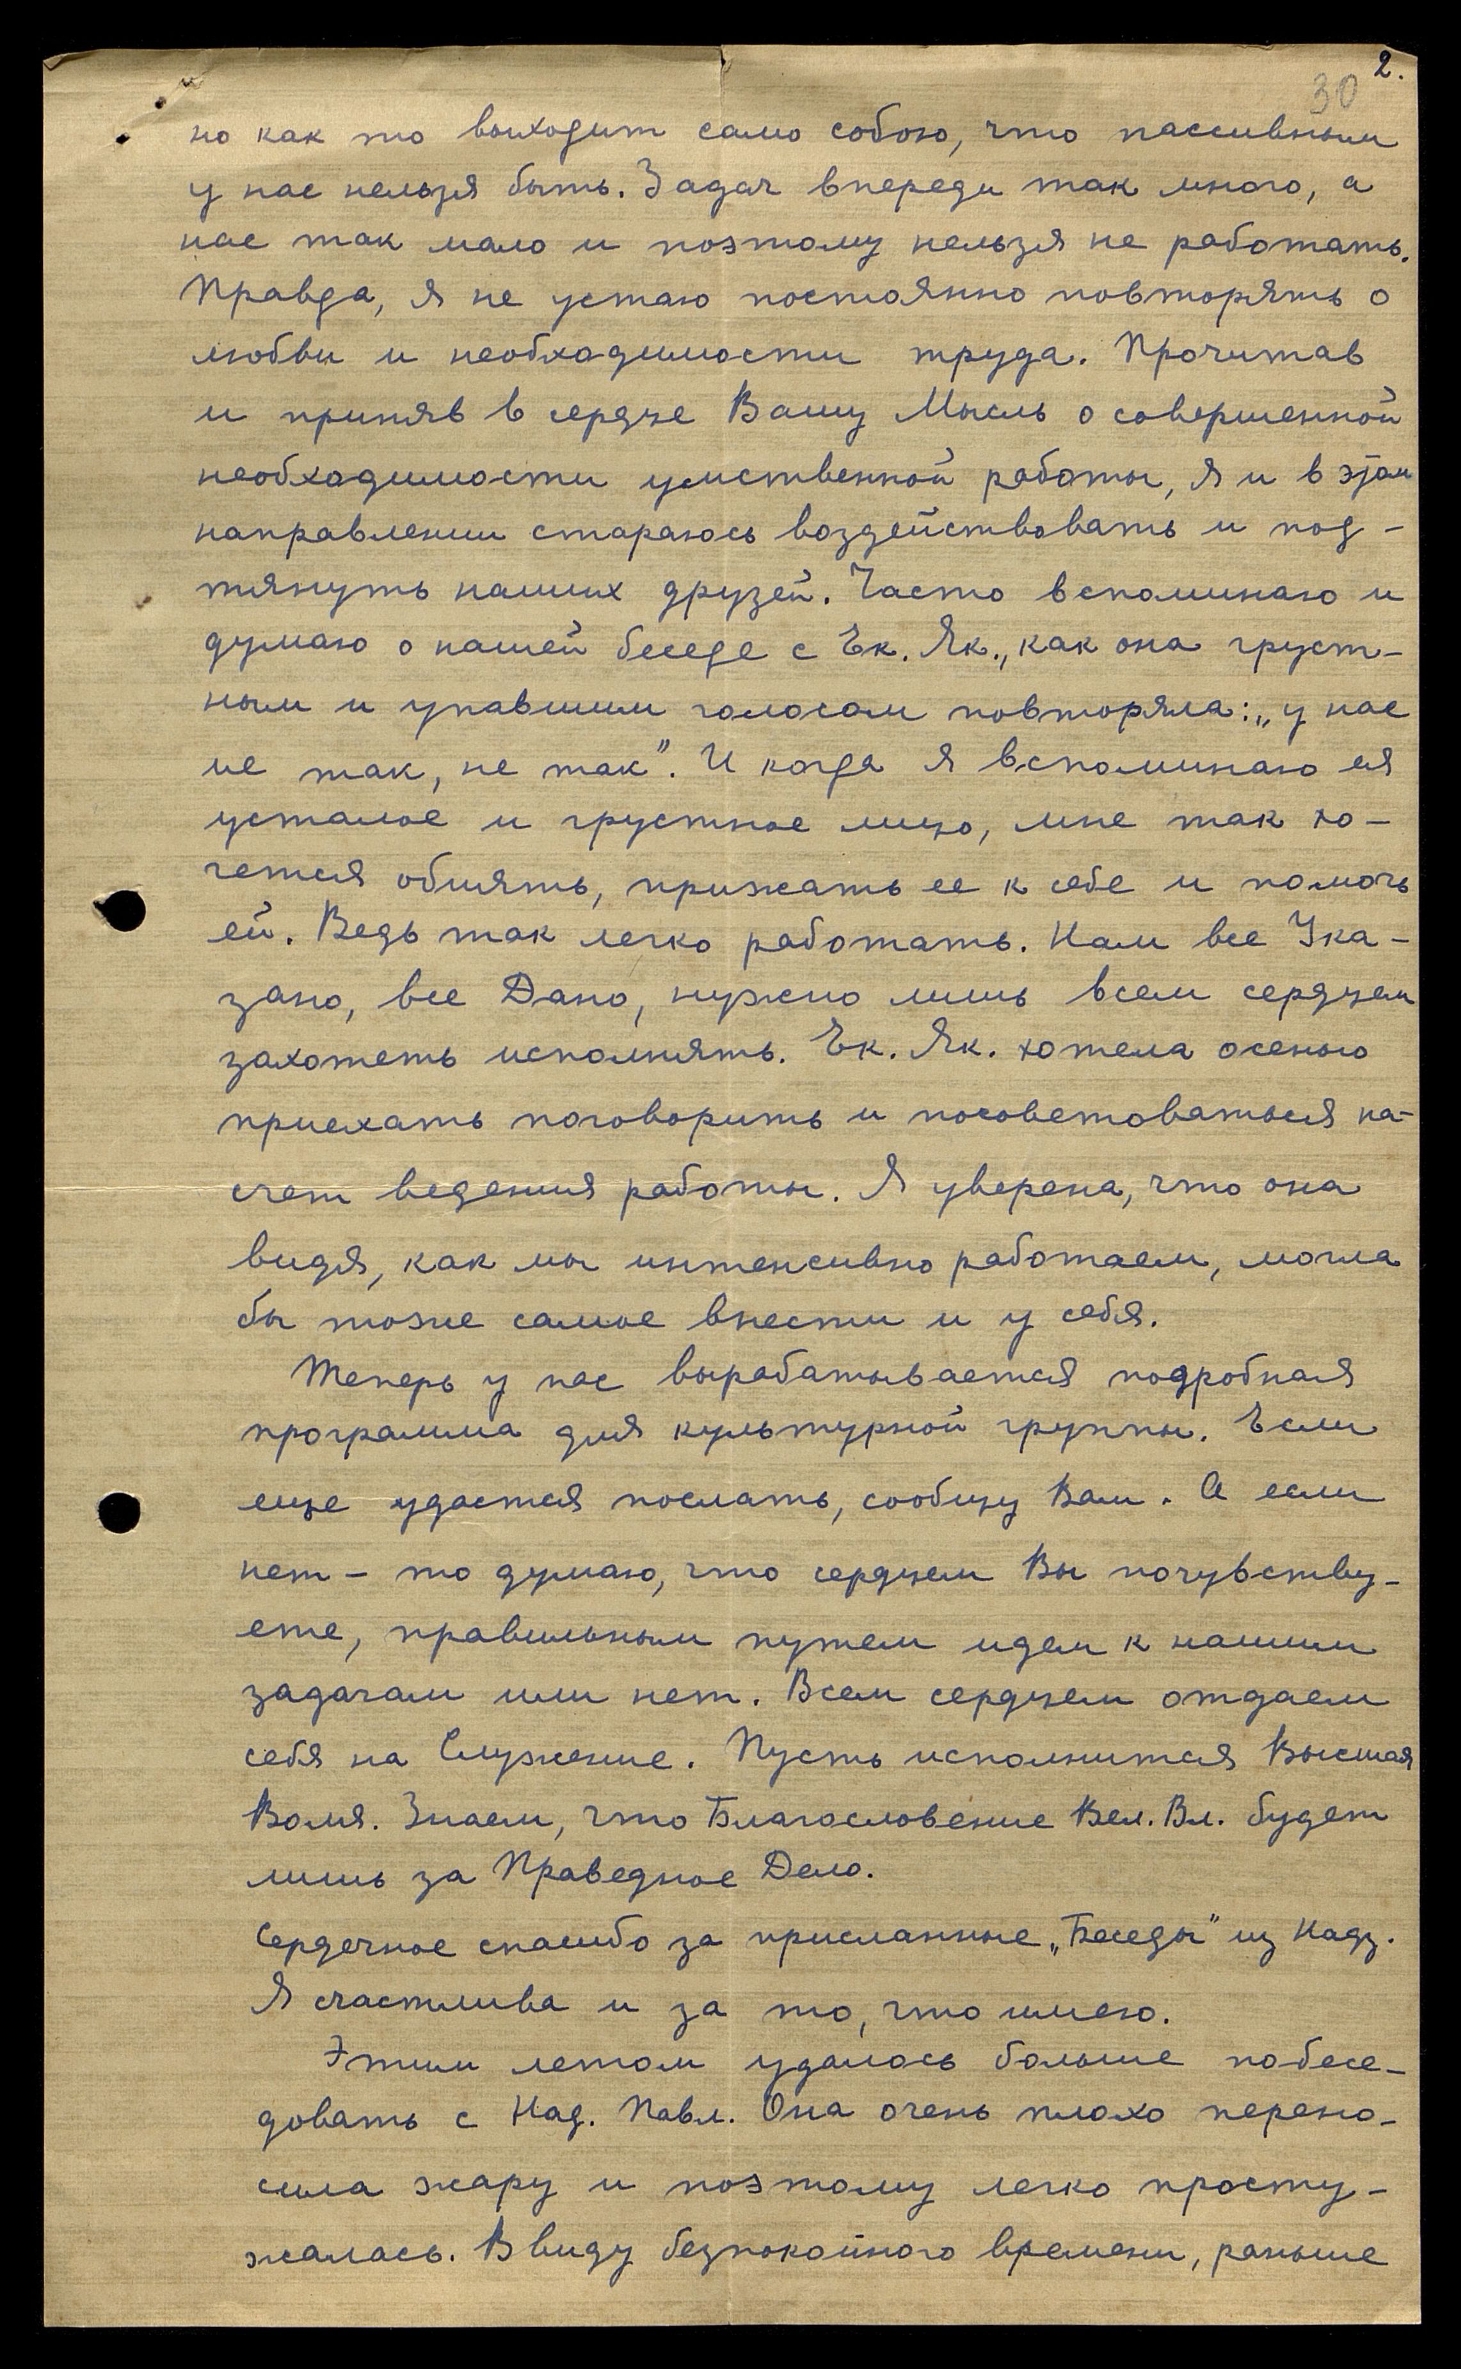 2.
30
но как то выходит само собою, что пассивным
у нас нельзя быть. Задач впереди так много, а
нас так мало и поэтому нельзя не работать.
Правда, я не устаю постоянно повторять о
любви и необходимости труда. Прочитав
и приняв в сердце Вашу Мысль о совершенной
необходимости умственной работы, я и в этом
направлении стараюсь воздействовать и под-
тянуть наших друзей. Часто вспоминаю и
думаю о нашей беседе с Ек. Як., как она груст-
ным и упавшим голосом повторяла: „у нас
не так, не так". И когда я вспоминаю ея
усталое и грустное лицо, мне так хо-
чется обнять, прижать ее к себе и помочь
ей. Ведь так легко работать. Нам все Ука-
зано, все Дано, нужно лишь всем сердцем
захотеть исполнять. Ек. Як. хотела осенью
приехать поговорить и посоветоваться на-
счет ведения работы. Я уверена, что она
видя, как мы интенсивно работаем, могла
бы тоже самое внести и у себя.
Теперь у нас вырабатывается подробная
программа для культурной группы. Если
еще удастся послать, сообщу Вам. А если
нет – то думаю, что сердцем Вы почувству-
ете, правильным путем идем к нашим
задачам или нет. Всем сердцем отдаем
себя на Служение. Пусть исполнится Высшая
Воля. Знаем, что Благословение Вел. Вл. будет
лишь за Праведное Дело.
Сердечное спасибо за присланные „Беседы" из Надз.
Я счастлива и за то, что имею.
Этим летом удалось больше побесе-
довать с Над. Павл. Она очень плохо перено-
сила жару и поэтому легко просту-
жалась. Ввиду безпокойного времени, раньше